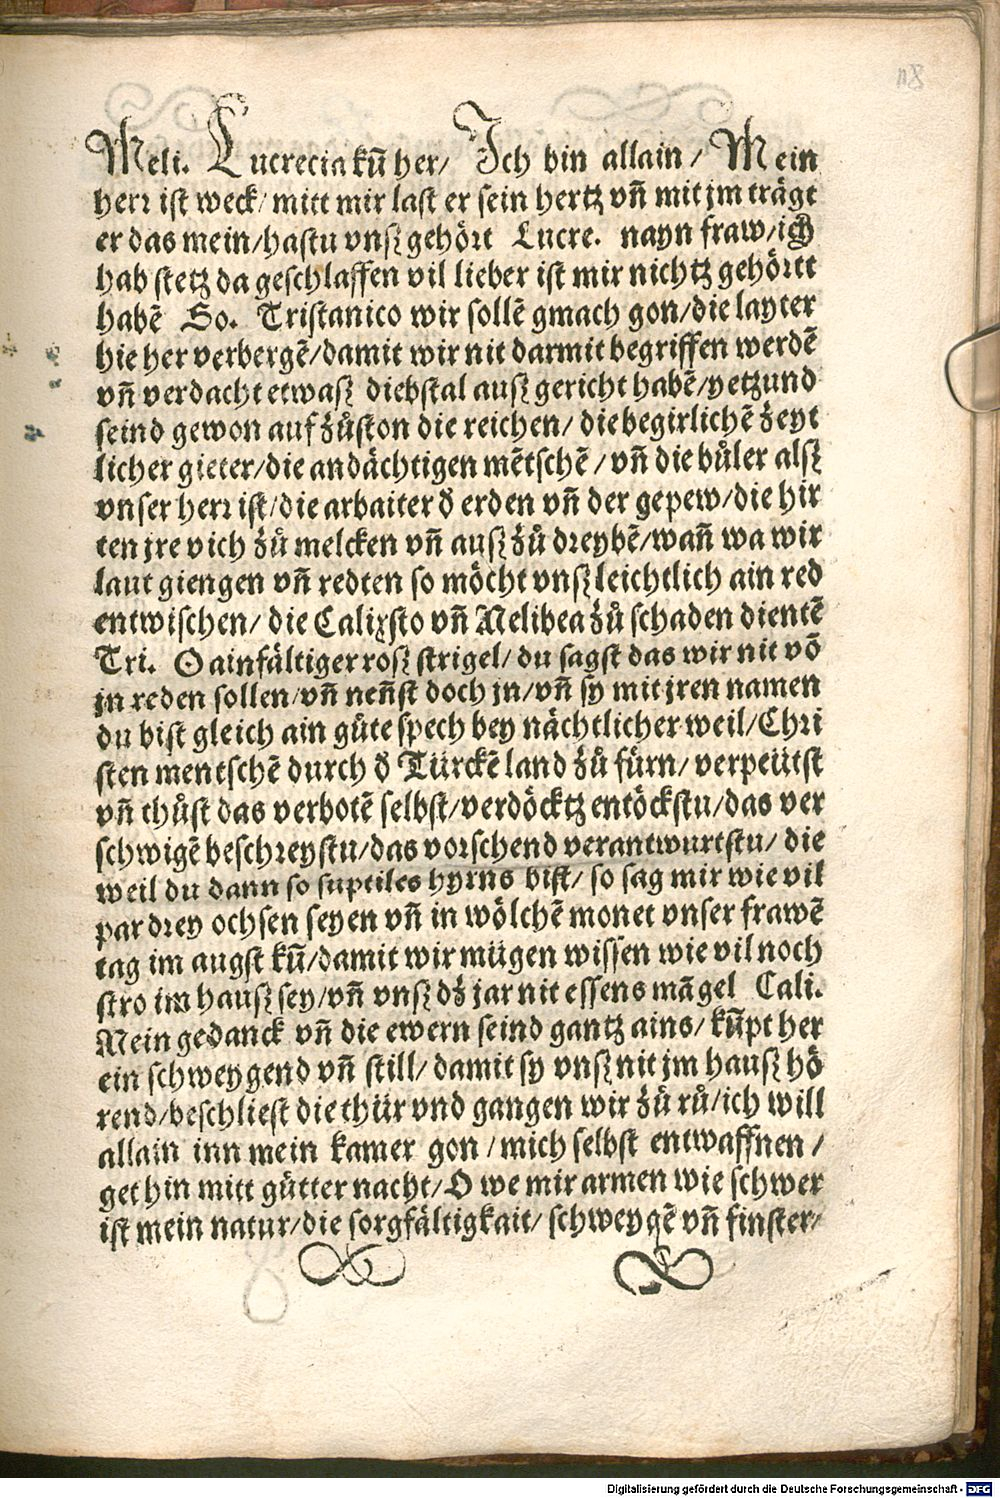 118
Meli. Lucrecia kum̄ her/ Ich bin allain/ Mein
herr ist weck/ mitt mir last er sein hertz vn̄ mit jm trägt
er das mein/hastu vnsz gehört Lucre. nayn fraw/ich
hab stetz da geschlaffen vil lieber ist mir nichtz gehörtt
habē So. Tristanico wir sollē gmach gon/die layter
hie her verbergē/damit wir nit darmit begriffen werdē
vn̄ verdacht etwasz diebstal ausz gericht habē/yetzund
seind gewon auf zůston die reichen/ die begirlichē zeyt
licher gieter/die andächtigen mētschē/vn̄ die bůler alsz
vnser herr ist/die arbaiter d̄ erden vn̄ der gepew/die hir
ten jre vich zů melcken vn̄ ausz zů dreybē/wan̄ wa wir
laut giengen vn̄ redten so möcht vnsz leichtlich ain red
entwischen/ die Calixsto vn̄ Melibea zů schaden dientē
Tri. O ainfältiger rosz strigel/ du sagst das wir nit vō
jn reden sollen/vn̄ nen̄st doch jn/vn̄ sy mit jren namen
du bist gleich ain gůte spech bey nächtlicher weil/Chri
sten mentschē durch d̄ Türckē land zů fürn/ verpeütst
vn̄ thůst das verbotē selbst/verdöcktz entöckstu/das ver
schwigē beschreystu/das vorschend verantwurtstu/ die
weil du dann so suptiles hyrns bist/ so sag mir wie vil
par drey ochsen seyen vn̄ in wölchē monet vnser frawē
tag im augst kum̄/damit wir mügen wissen wie vil noch
stro im hausz sey/vn̄ vnsz dz jar nit essens māgel Cali.
Mein gedanck vn̄ die ewern seind gantz ains/ kum̄pt her
ein schweygend vn̄ still/ damit sy vnsz nit jm hausz hö
rend/beschliest die thür vnd gangen wir zů rů/ich will
allain inn mein kamer gon/mich selbst entwaffnen/
get hin mitt gůtter nacht/O we mir armen wie schwer
ist mein natur/die sorgfältigkait/ schweygē vn̄ finster/
Digitalisierung gefördert durch die Deutsche Forschungsgemeinschaft - DFG